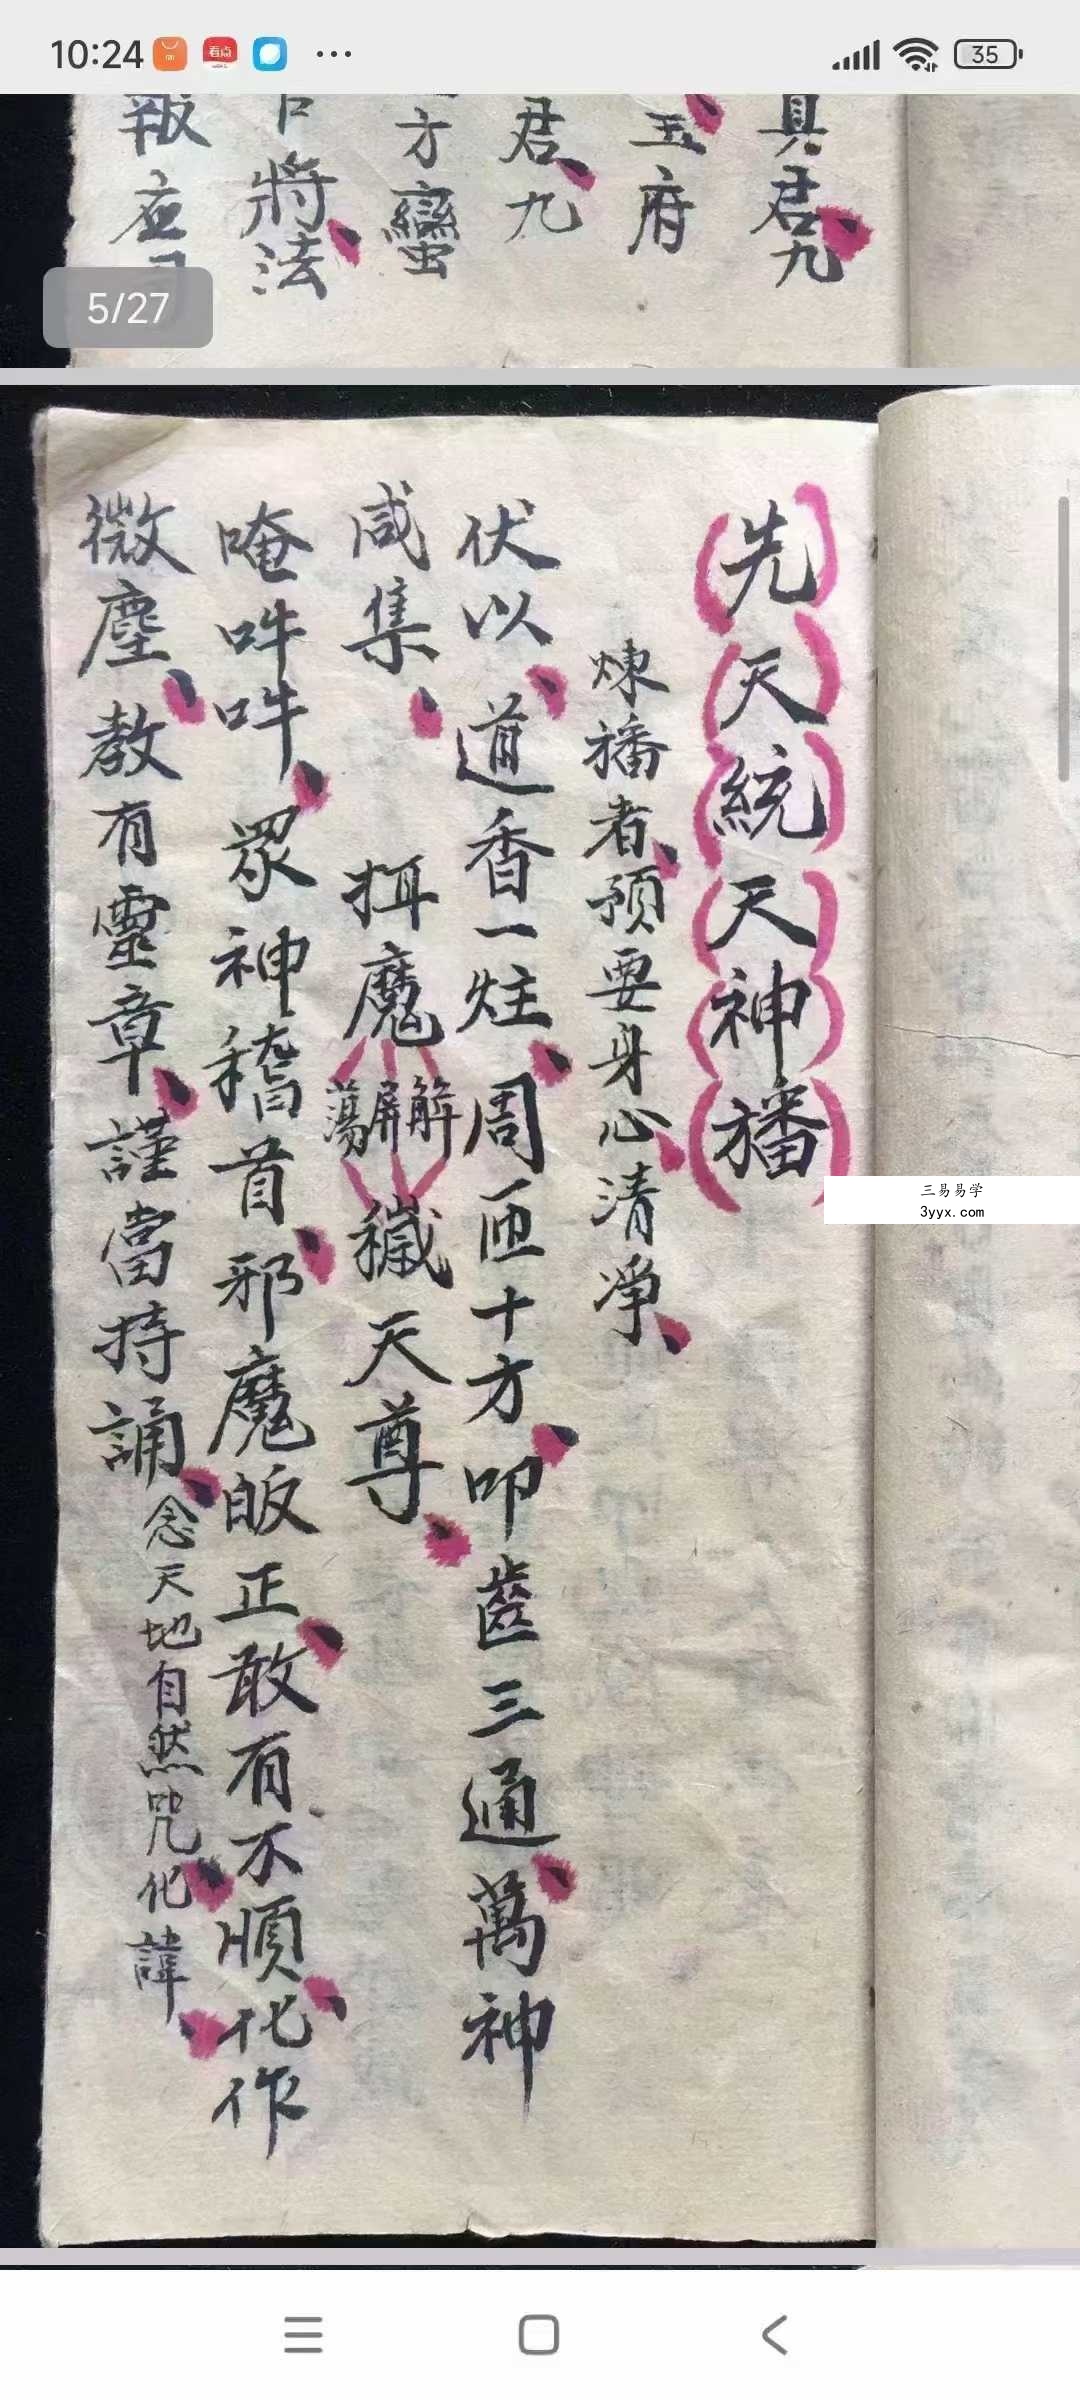 10:24
看点
35
真君九
玉府
君九
方蠻
將法
5/27
先天統天神旙
煉旙者、預要身心、清净、
伏以、道香一炷、周匝十方、叩齒三通、萬神
咸集、 揖魔解屏蕩穢天尊、
唵吽吽、眾神稽首、邪魔皈正、敢有不順、化作
微塵、教有靈章、謹當持誦、念天地自然咒、化諱、
三易易学
3yyx.com